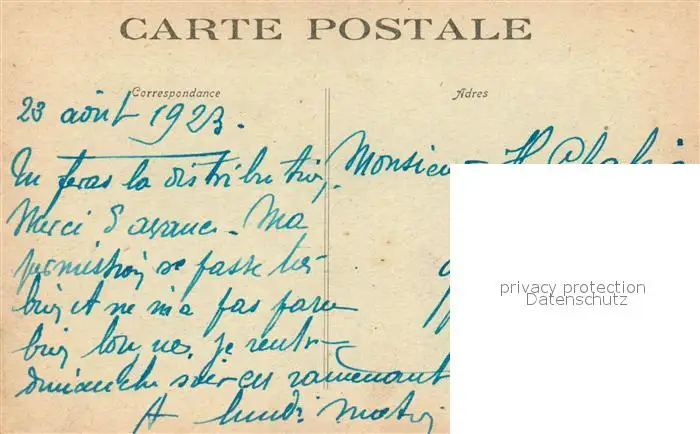 CARTE POSTALE
Correspondance
Adres
23 août 1923.
Tu feras la distribution.
Merci d'avance. Ma
permission se passe très
bien et ne m'a pas paru
bien longue. Je rentre
dimanche soir en ramenant
A lundi matin
Monsieur H.
privacy protection
Datenschutz